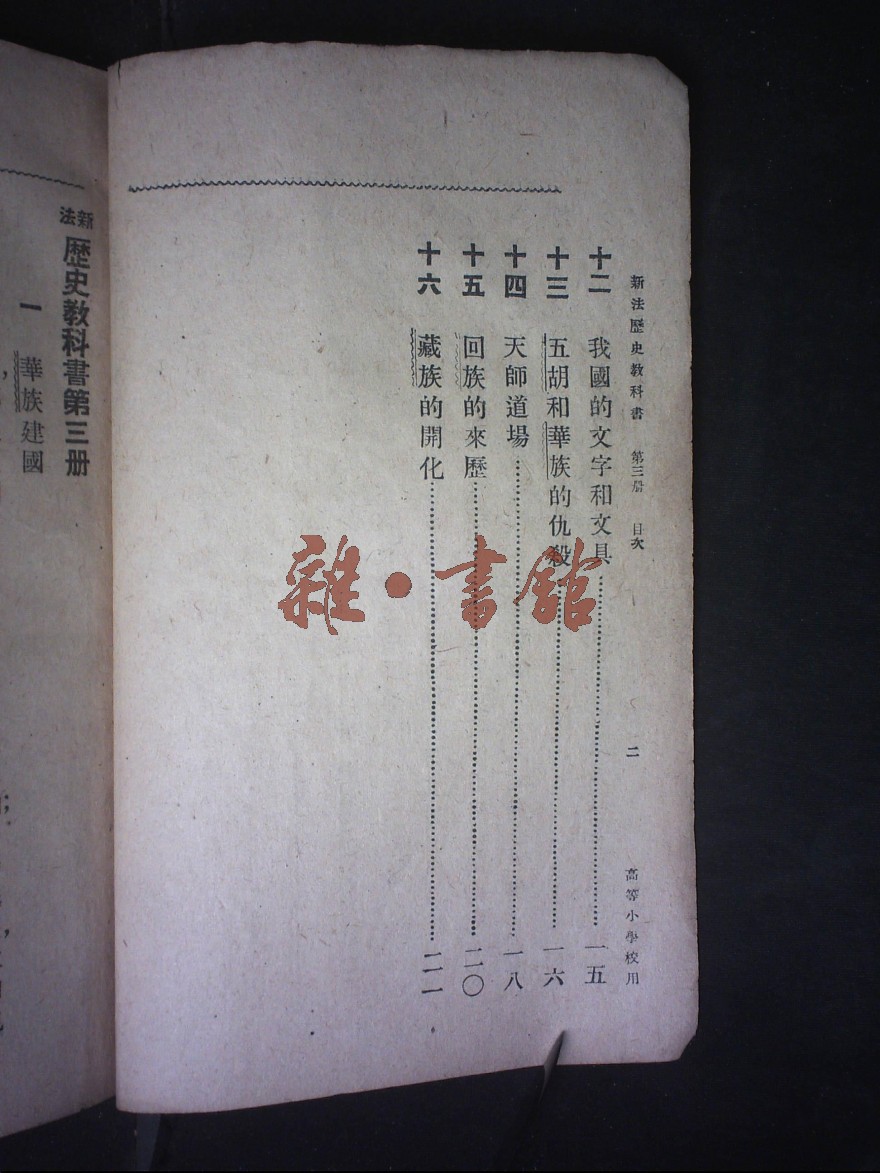 新法歷史教科書 第三册 目次 二 高等小學校用
十二 我國的文字和文具 一五
十三 五胡和華族的仇殺 一六
十四 天師道場 一八
十五 回族的來歷 二〇
十六 藏族的開化 二一
新法歷史教科書第三册
一 華族建國
雜·書館